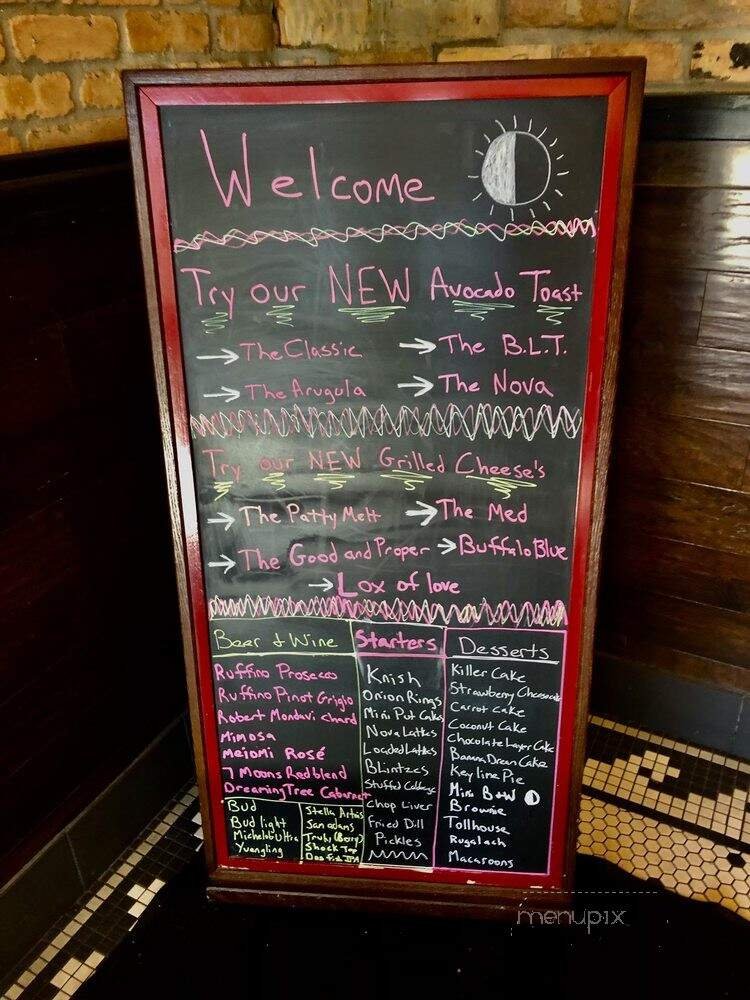 Welcome
Try our NEW Avocado Toast
→ The Classic → The B.L.T.
→ The Arugula → The Nova
Try our NEW Grilled Cheese's
→ The Patty Melt → The Med
→ The Good and Proper → Buffalo Blue
→ Lox of love
Beer & Wine
Ruffino Prosecco
Ruffino Pinot Grigio
Robert Mondavi chard
Mimosa
meiomi Rosé
7 Moons Red blend
Dreaming Tree Cabernet
Bud
Bud light
Michelob Ultra
Yuengling
Stella Artois
Sam adams
Truly (Berry)
Shock Top
Starters
Knish
Onion Rings
Mini Pot Cakes
Nova Lattes
Loaded Lattes
Blintzes
Stuffed Cabbage
Chop Liver
Fried Dill
Pickles
Desserts
Killer Cake
Strawberry Cheesecake
Carrot Cake
Coconut Cake
Chocolate Layer Cake
Banana Dream Cake
Key lime Pie
Mini B&W
Brownie
Tollhouse
Rugalach
Macaroons
menupix